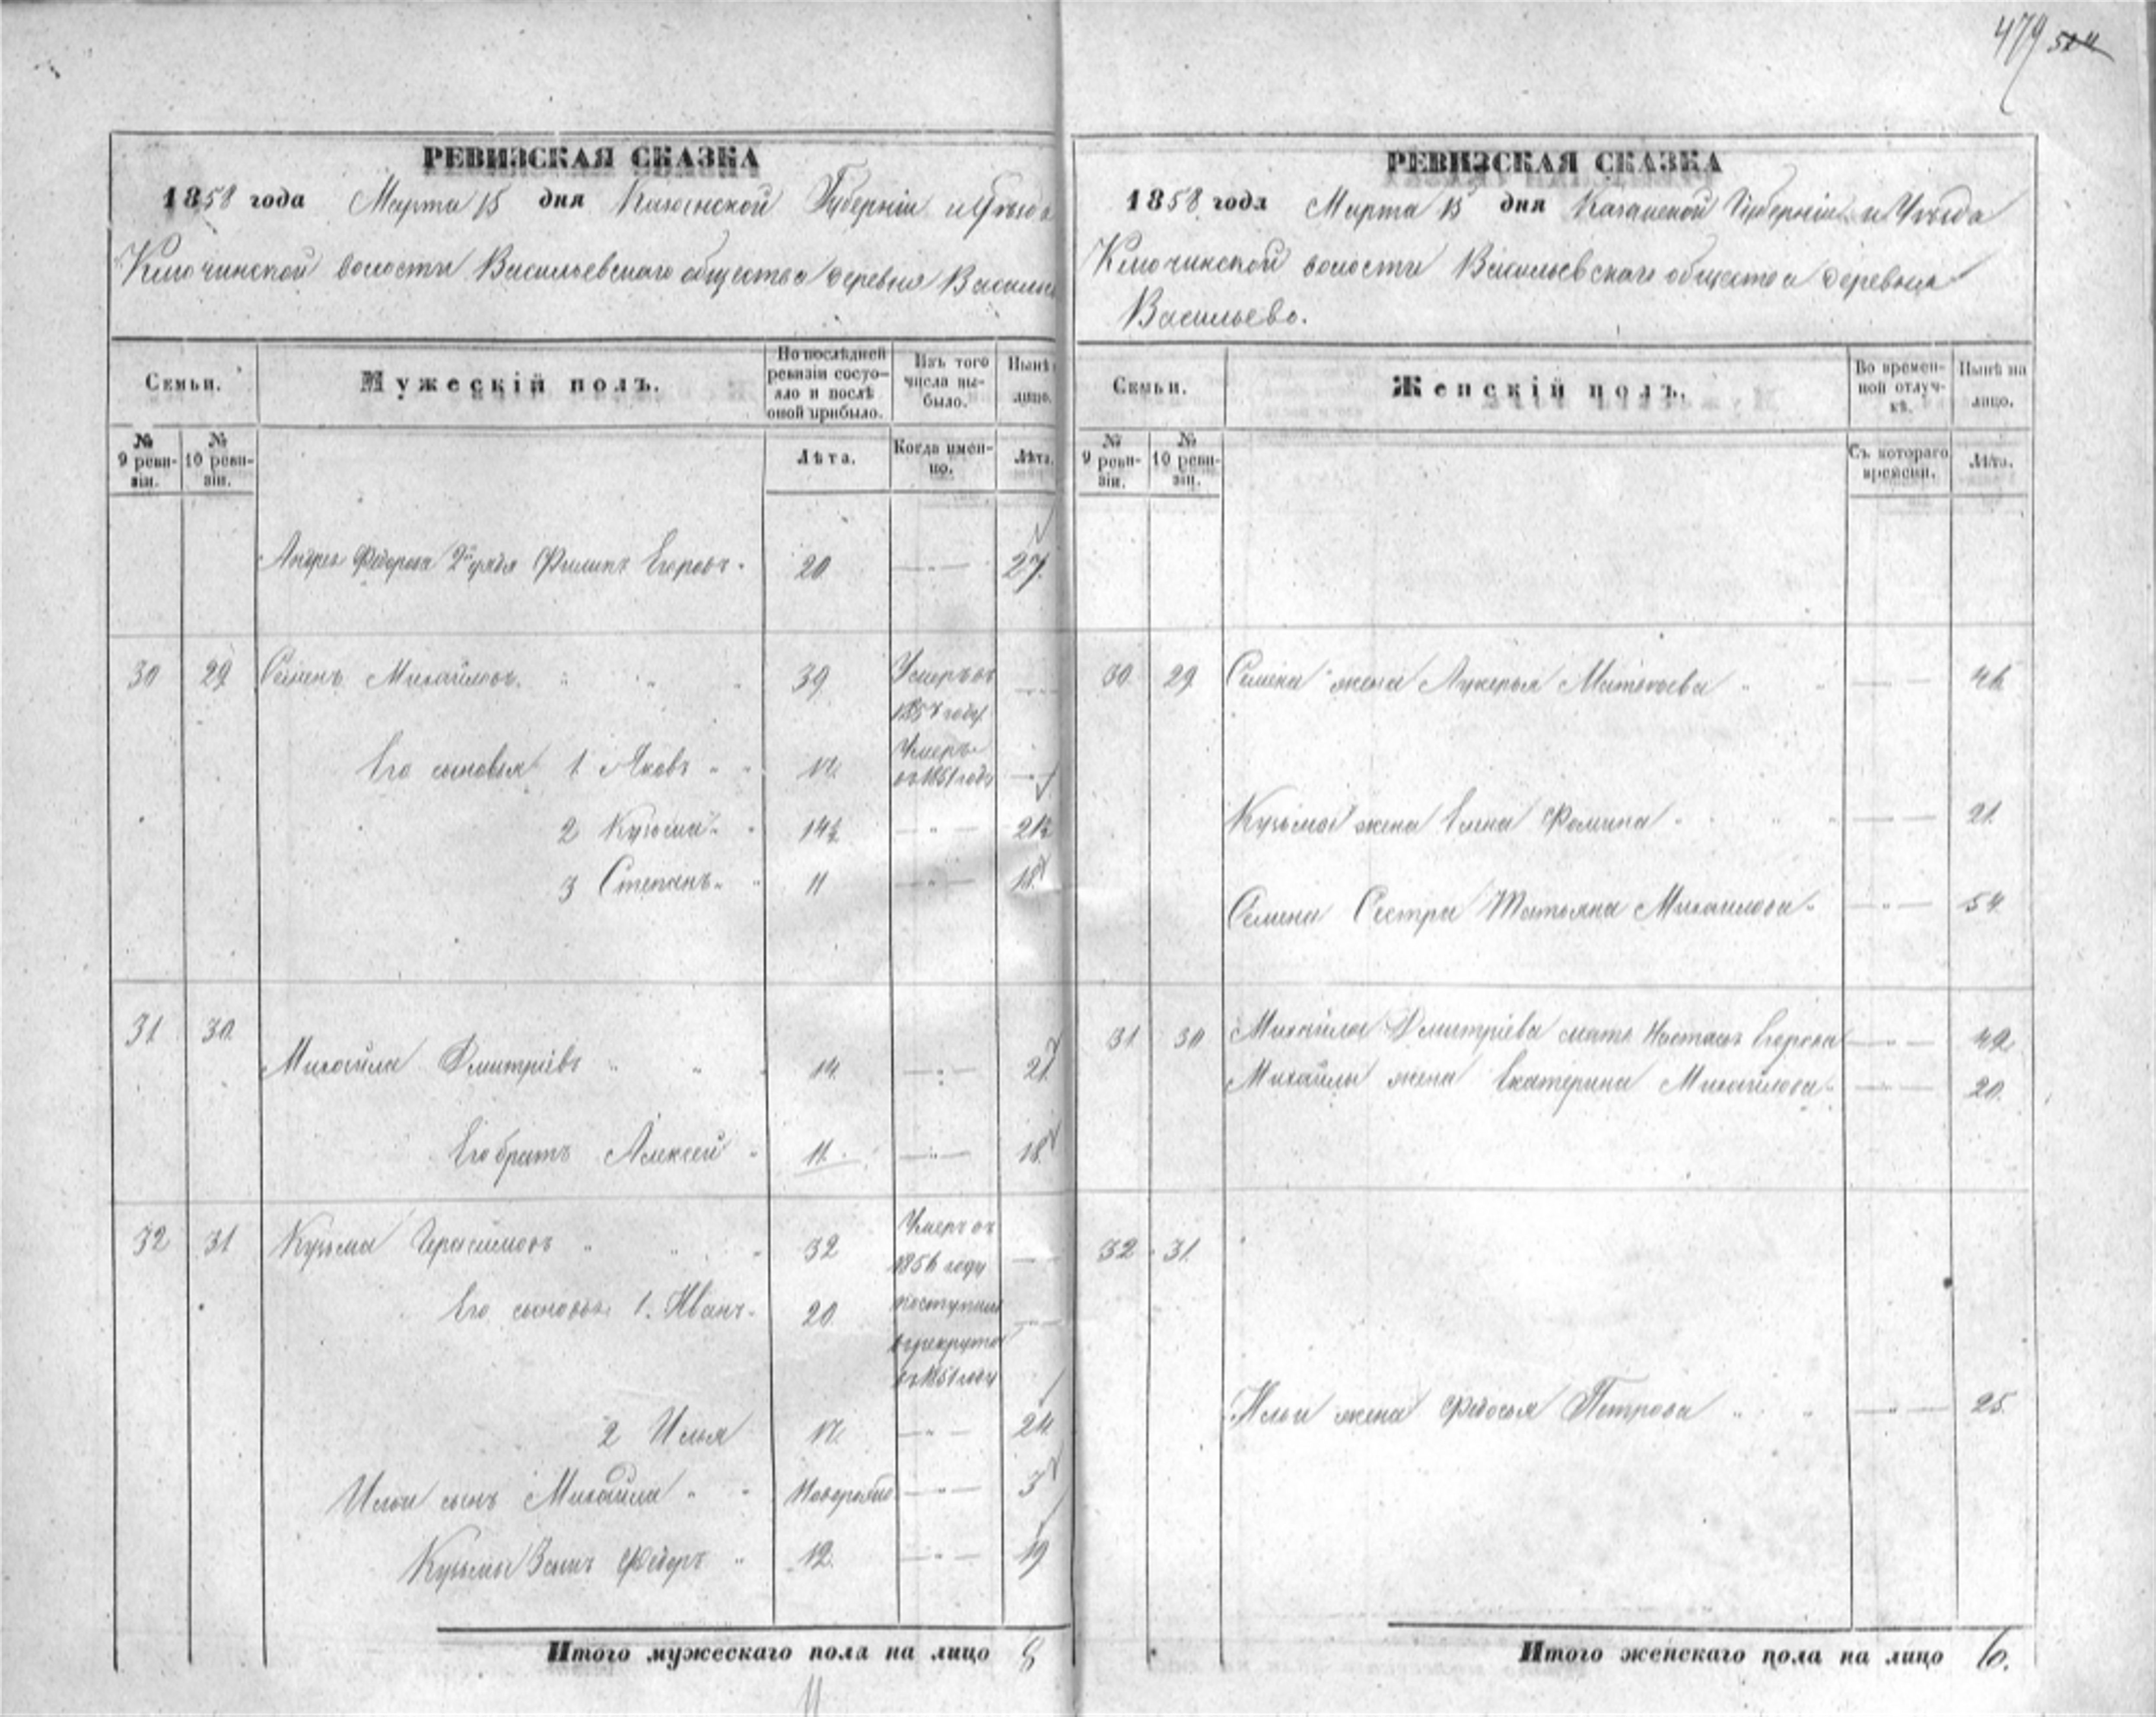 479 524
РЕВИЗСКАЯ СКАЗКА
1858 года Марта 15 дня Казанской Губерніи и Уѣзда
Ключинской волости Васильевскаго общества деревня Василье
Семьи.
Мужескій полъ.
По послѣдней ревизіи состояло и послѣ оной прибыло.
Изъ того числа выбыло.
Нынѣ лицо.
№ 9 ревизіи.
№ 10 ревизіи.
Лѣта.
Когда именно.
Лѣта.
Андрея Федорова 2й дядя Филипъ Егоровъ 20 27
30 29 Семенъ Михайловъ 39 Умеръ въ 1857 году
Его сыновья 1 Яковъ 17 Умеръ въ 1851 году
2 Кузьма 14½ 21½
3 Степанъ 11 18
31 30 Михайла Дмитріевъ 14 21
Его братъ Алексей 11 18
32 31 Кузьма Герасимовъ 32 Умеръ въ 1856 году
Его сыновья 1. Иванъ 20 поступилъ в рекруты въ 1851 году
2 Илья 17 24
Ильи сынъ Михайла Новорожд 3
Кузьмы 3 сынъ Федоръ 12 19
Итого мужескаго пола на лицо 8
РЕВИЗСКАЯ СКАЗКА
1858 года Марта 15 дня Казанской Губерніи и Уѣзда
Ключинской волости Васильевскаго общества деревня
Васильево.
Семьи.
Женскій полъ.
Во временной отлучкѣ.
Нынѣ на лицо.
№ 9 ревизіи.
№ 10 ревизіи.
Съ котораго времени.
Лѣта.
30 29 Семена жена Лукерья Матвѣева 46
Кузьмы жена Елена Фомина 21
Семена Сестра Татьяна Михаилова 54
31 30 Михайлы Дмитріева мать Настасья Егорова 49
Михайлы жена Екатерина Михайлова 20
32 31
Ильи жена Федосья Петрова 25
Итого женскаго пола на лицо 6.